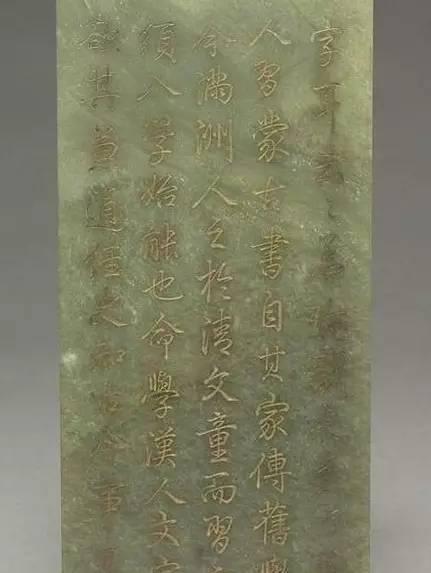 字耳
人習蒙古書自其家傳舊
今滿洲人之於清文童而習
須入學始能也命學漢人文字
欲其兼通經史知古今事